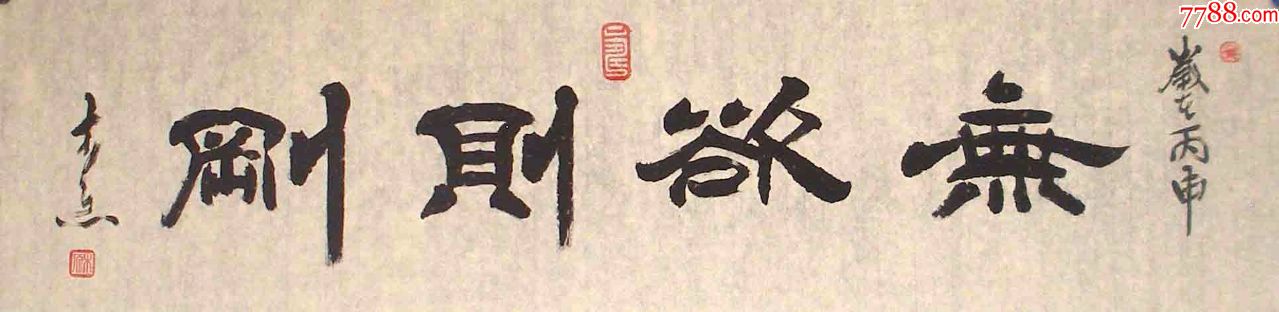 7788.com
歲在丙申
無欲則剛